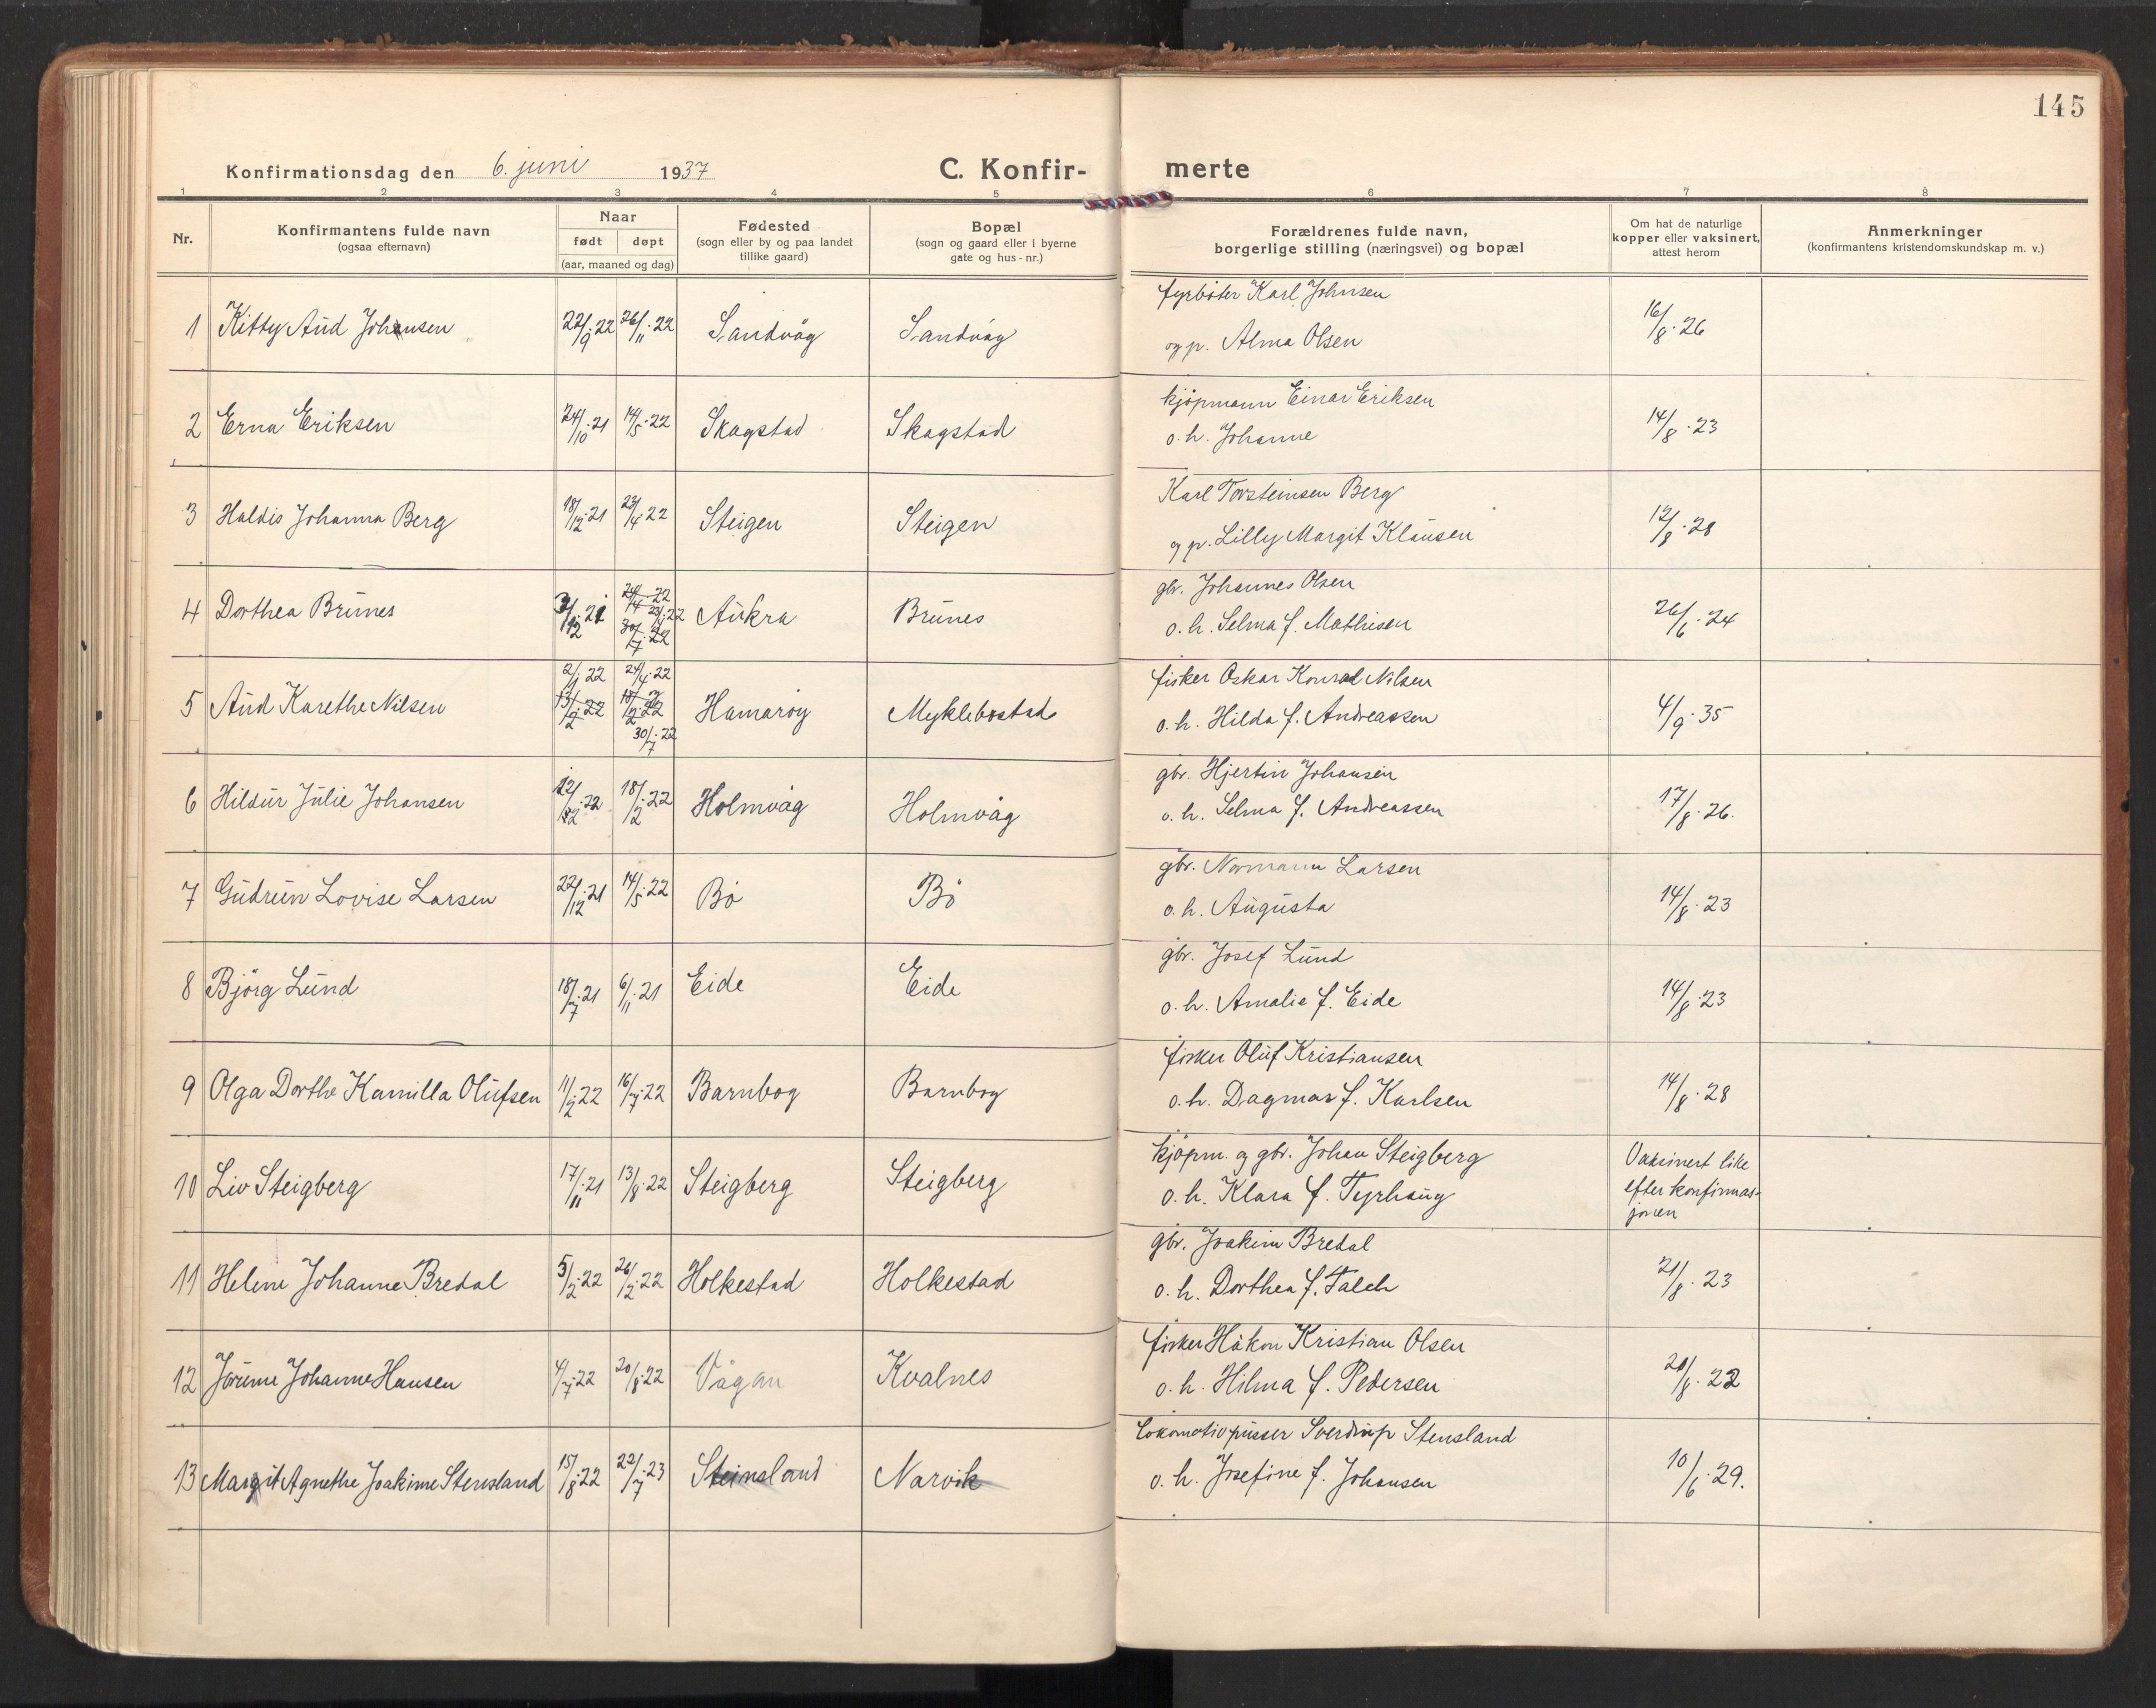 145
Konfirmationsdag den 6. juni 1937 C. Konfir- merte
1 2 3 4 5 6 7 8
Nr. Konfirmantens fulde navn (ogsaa efternavn) Naar født døpt (aar, maaned og dag) Fødested (sogn eller by og paa landet tillike gaard) Bopæl (sogn og gaard eller i byerne gate og hus-nr.) Forældrenes fulde navn, borgerlige stilling (næringsvei) og bopæl Om hat de naturlige kopper eller vaksinert, attest herom Anmerkninger (konfirmantens kristendomskundskap m. v.)
1 Kitty Aud Johnsen 22/9.22 26/11.22 Sandvåg Sandvåg fyrbøter Karl Johnsen
og p. Alma Olsen 16/8.26
2 Erna Eriksen 24/10.21 14/5.22 Skagstad Skagstad kjøpmann Einar Eriksen
o. h. Johanne 14/8.23
3 Haldis Johanna Berg 18/12.21 23/4.22 Steigen Steigen Karl Torsteinsen Berg
og p. Lilly Margit Klausen 12/8.28
4 Dorthea Brunes Aukra Brunes gbr. Johannes Olsen
o. h. Selma f. Mathisen 26/6.24
5 Aud Karethe Nilsen 2/1.22 24/4.22
13/2.22 30/7.22 Hamarøy Myklebostad fisker Oskar Konrad Nilsen
o. h. Hilda f. Andreassen 4/9.35
6 Hildur Julie Johansen 18/2.22 Holmvåg Holmvåg gbr. Hjertin Johansen
o. h. Selma f. Andreassen 17/8.26.
7 Gudrun Lovise Larsen 22/12.21 14/5.22 Bø Bø gbr. Normann Larsen
o. h. Augusta 14/8.23
8 Bjørg Lund 18/7.21 6/11.21 Eide Eide gbr. Josef Lund
o. h. Amalie f. Eide 14/8.23
9 Olga Dorthe Kamilla Olufsen 11/2.22 16/7.22 Barnbog Barnbog fisker Oluf Kristiansen
o. h. Dagmar f. Karlsen 14/8.28
10 Liv Steigberg 17/11.21 13/8.22 Steigberg Steigberg kjøpm. og gbr. Johan Steigberg
o. h. Klara f. Tyrhaug Vaksinert like
efter konfirmas-
jonen
11 Helene Johanne Bredal 5/2.22 26/2.22 Holkestad Holkestad gbr. Joakim Bredal
o. h. Dorthea f. Falch 21/8.23
12 Jorunn Johanne Hansen 4/7.22 20/8.22 Vågan Kvalnes fisker Håkon Kristian Olsen
o. h. Hilma f. Pedersen 20/8.22
13 Margit Agnethe Joakime Stensland 15/8.22 22/7.23 Steinsland Narvik Lokomotivpusser Sverdrup Stensland
o. h. Josefine f. Johansen 10/6.29.